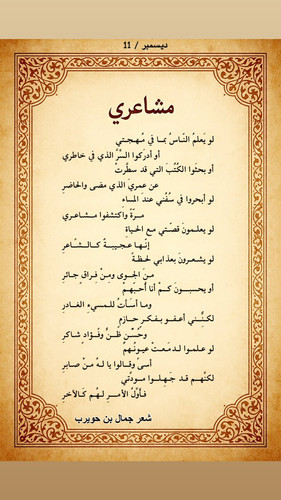 ديسمبر / 11
مشاعري
لو يَعلمُ النّاسُ بما في مُهجتي
أو أدركوا السرَّ الذي في خاطري
أو بحثوا الكُتْبَ التي قد سطّرتْ
عن عمريَ الذي مضى والحاضرِ
لو أبحروا في سُفُني عندَ المساء
مرّةً واكتشفوا مشاعري
لو يعلمونَ قصّتي مع الحياةِ
إنّها عجيبةٌ كالشّاعرِ
لو يشعرونَ بعذابي لحظةً
منَ الجوى ومِنْ فراقٍ جائرِ
أو يحسبونَ كمْ أنا أُحبّهمْ
وما أسأتُ للمسيءِ الغادرِ
لكنّني أعفو بفكرٍ حازمٍ
وحُسْنِ ظنٍّ وفؤادٍ شاكرِ
لو علموا لدمعتْ عيونُهمْ
أسىً وقالوا يا لهُ منْ صابرِ
لكنّهم قد جَهِلوا مودّتي
فأوّلُ الأمرِ لهُم كالآخرِ
شعر جمال بن حويرب